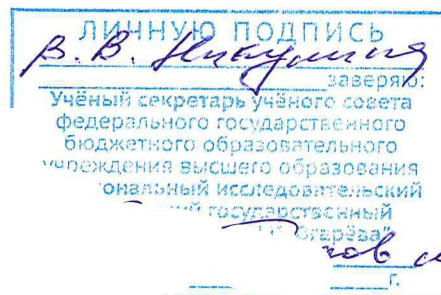 ЛИЧНУЮ ПОДПИСЬ
В. В. Никулина
заверяю:
Учёный секретарь учёного совета
федерального государственного
бюджетного образовательного
учреждения высшего образования
ональный исследовательский
государственный
Огарёва"
г.